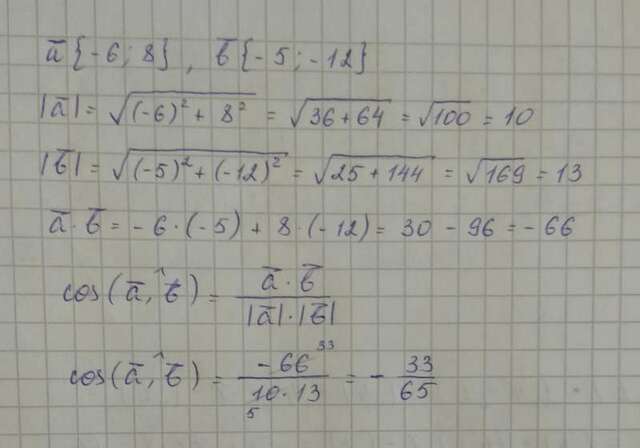 a̅ {-6; 8}, b̅ {-5; -12}
|a̅| = √((-6)² + 8²) = √(36 + 64) = √100 = 10
|b̅| = √((-5)² + (-12)²) = √(25 + 144) = √169 = 13
a̅ · b̅ = -6 · (-5) + 8 · (-12) = 30 - 96 = -66
cos(a̅,^b̅) = (a̅ · b̅) / (|a̅| · |b̅|)
cos(a̅,^b̅) = -66 ³³ / (10 ₅ · 13) = - 33/65